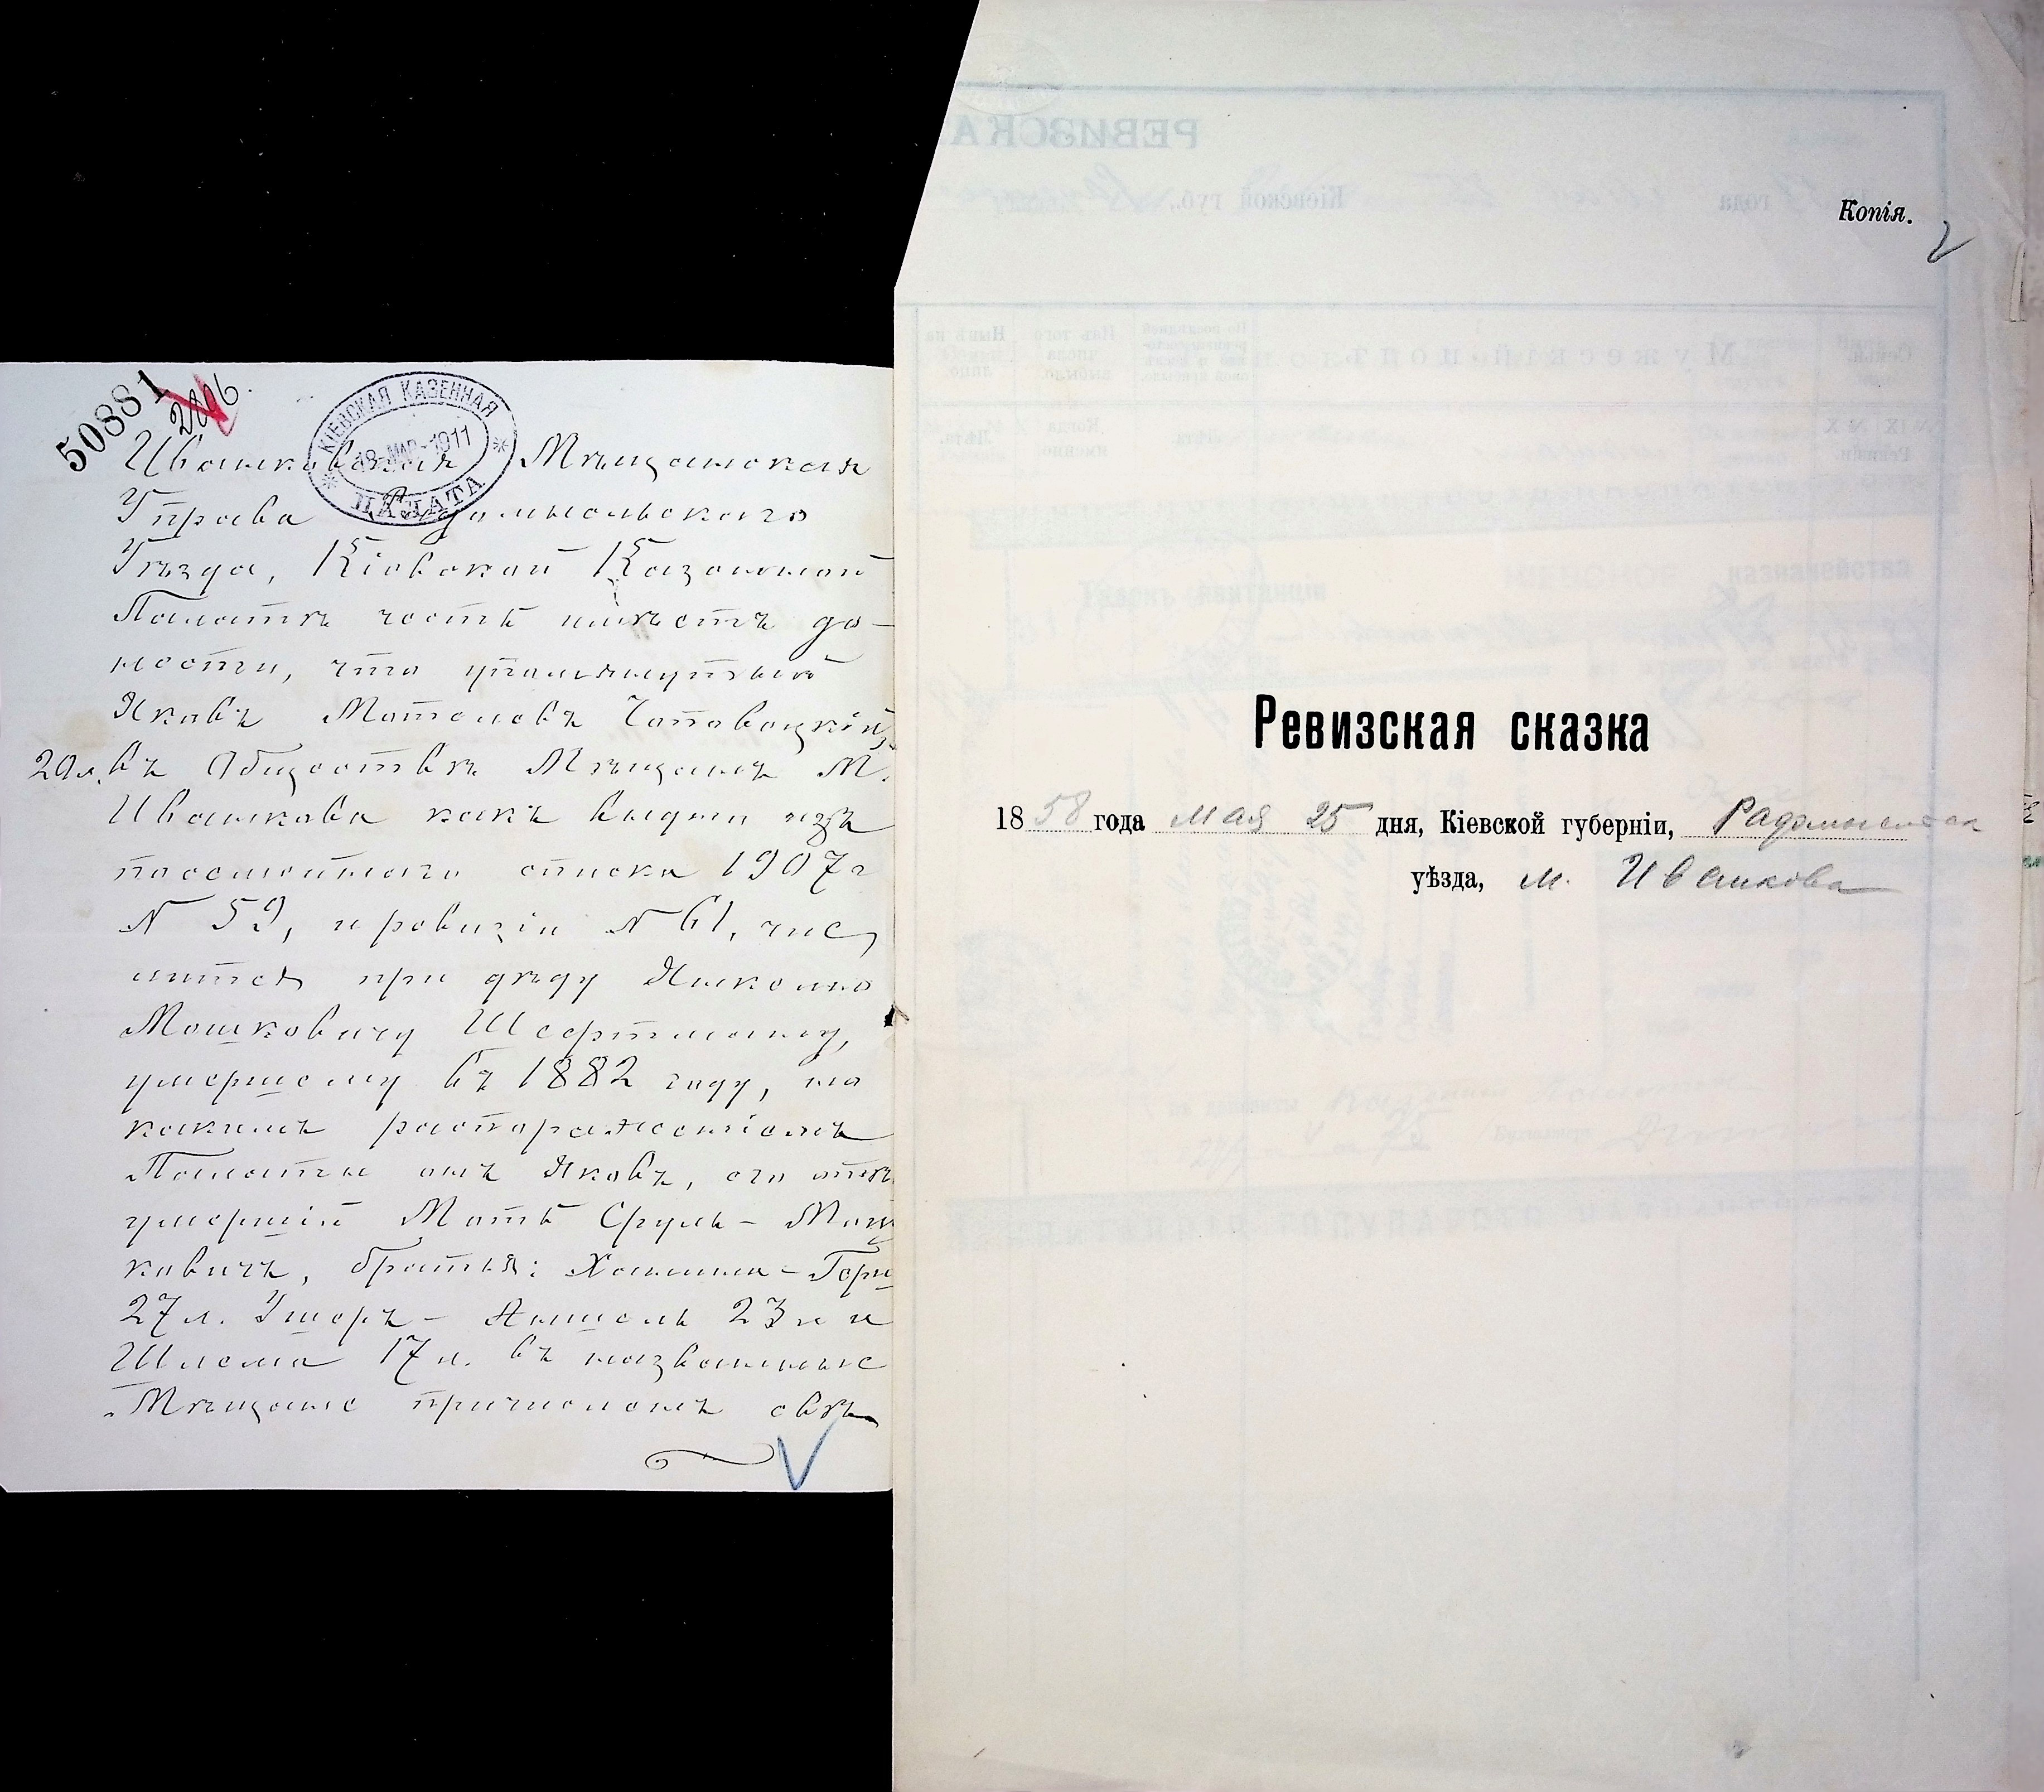 50881
2006.
КІЕВСКАЯ КАЗЕННАЯ
18-МАР-1911
ПАЛАТА
Ивашковская Мѣщанская
Управа Радомысльскаго
Уѣзда, Кіевской Казенной
Палатѣ честь имѣетъ до-
нести, что упомянутый
Яковъ Мотелевъ Чаповецкій,
20 л. въ Обществѣ Мѣщанъ М.
Ивашкова какъ видно изъ
посемейнаго списка 1907 г
№ 59, и ревизіи № 61, чис
лится при дѣду
Мошковичу Шефтману,
умершему въ 1882 году, по
какимъ распоряженіямъ
Палаты онъ Яковъ, его отецъ
умершій Моть Сруль-Мош
ковичъ, братья: Хаимъ-Герш
27 л. Ушеръ-Аншель 23 л и
Шлема 17 л. въ названные
Мѣщане причисленъ свѣ
РЕВИЗСКА
Копія.
2
Ревизская сказка
1858 года мая 25 дня, Кіевской губерніи, Радомысльск
уѣзда, м. Ивашкова